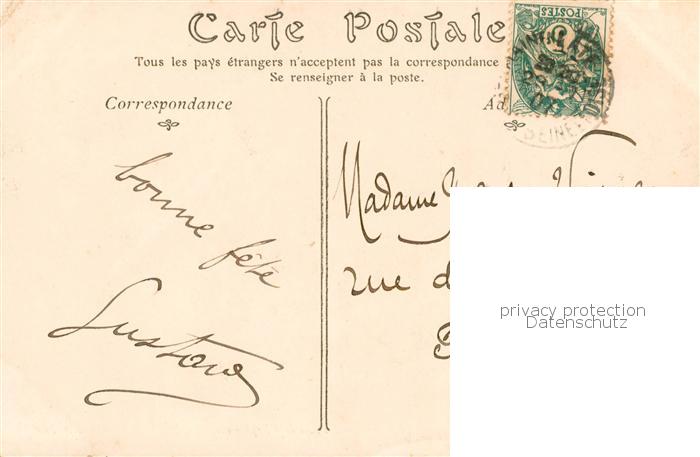 Carte Postale
Tous les pays étrangers n'acceptent pas la correspondance
Se renseigner à la poste.
Correspondance
Ad
POSTES
SEINE
bonne fête
Gustave
Madame
rue d
privacy protection
Datenschutz